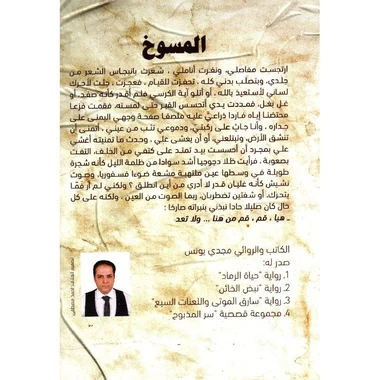 المسوخ
ارتجست مفاصلي، ونفرت أناملي، شعرت بانبجاس الشعر من
جلدي، وبتصلب بدني كله، تحفزت للقيام، فعجزت، جئت لأحرك
لساني لأستعيذ بالله، أو أتلو آية الكرسي فلم أقدر كأنه صُفد، أو
غل بغل، فمددت يدي أتحسس القبر حتى لمسته، فقمت فزعا
محتضنا إياه فاردا ذراعيّ عليه ملصقا صفحة وجهي اليمنى على
جداره، وأنا جاثٍ على ركبتيّ، ودموعي تثب من عيني، أتمنى أن
تنشق الأرض، وتبتلعني، أو أن يغشى علي، وحدث ما تمنيته أغشي
علي بمجرد أن أحسست بيد تمتد على كتفي من الخلف، التفت
بصعوبة، فرأيت ظلا دجوجيا أشد سوادا من ظلمة الليل كأنه شجرة
طويلة في وسطها عين ملتهبة مشعة ضوءا فسفوريا، وصوت
نشيش كأنه غليان قدر لا أدري من أين انطلق ؟ ولكني لم أر فمًا
يتحرك، أو شفتين تضطربان، ربما الصوت من العين، ولكنه على كل
حال كان صليلا حادا نبذني بنبراته صارخا :
ـ هيا ، قم ، قم من هنا ... ولا تعد
الكاتب والروائي مجدي يونس
صدر له:
1. رواية "حياة الرماد"
2. رواية "نبض الخائن"
3. رواية "سارق الموتى واللعنات السبع"
4. مجموعة قصصية "سر المذبوح"